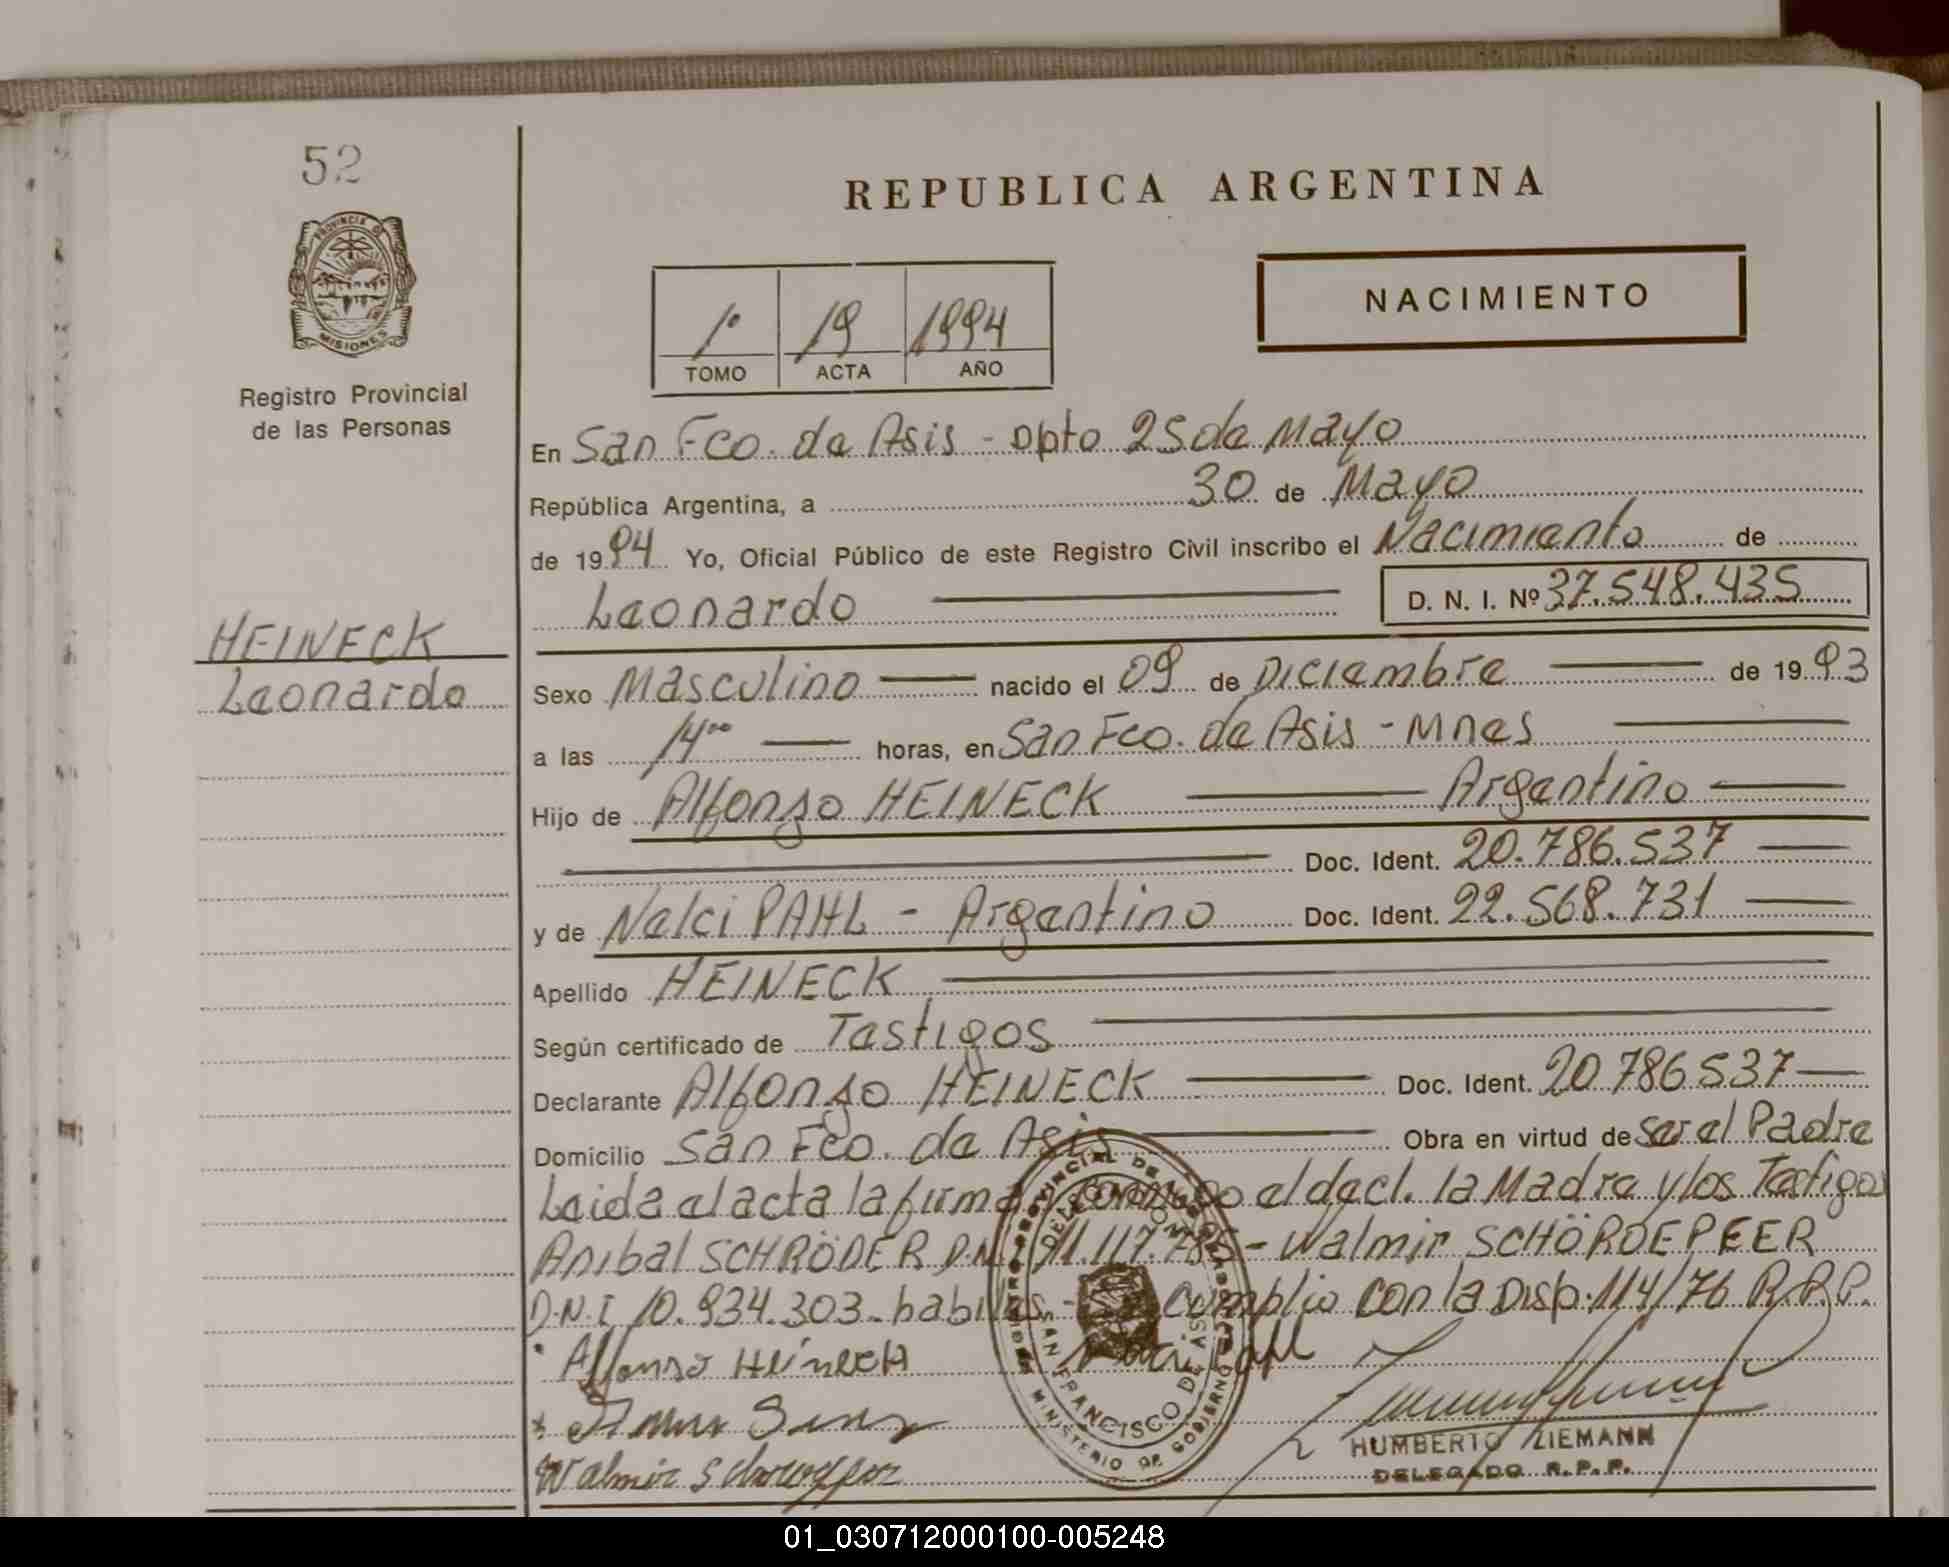 52
REPUBLICA ARGENTINA
PROVINCIA DE
MISIONES
Registro Provincial
de las Personas
NACIMIENTO
1º 19 1994
TOMO ACTA AÑO
En San Fco. de Asis - Dpto 25 de Mayo
República Argentina, a 30 de Mayo
de 1994 Yo, Oficial Público de este Registro Civil inscribo el Nacimiento de
Leonardo D. N. I. Nº 37.548.435
HEINECK
Leonardo
Sexo Masculino nacido el 09 de Diciembre de 1993
a las 14°° horas, en San Fco. de Asis - Mnes
Hijo de Alfonso HEINECK Argentino
Doc. Ident. 20.786.537
y de Nelci PAHL - Argentino Doc. Ident. 22.568.731
Apellido HEINECK
Según certificado de Testigos
Declarante Alfonso HEINECK Doc. Ident. 20.786.537
Domicilio San Fco. de Asis Obra en virtud de ser el Padre
Leida el acta la firma conmigo el decl. la Madre y los Testigos
Anibal SCHRÖDER D.N.I 11.117. - Walmir SCHÖRDEPEER
D.N.I 10.934.303 - habiles - cumplio con la Disp. 114/76 R.P.P.
Alfonso Heineck
Walmir
HUMBERTO ZIEMANN
DELEGADO R.P.P.
SAN FRANCISCO DE ASIS
MINISTERIO DE GOBIERNO
01_030712000100-005248